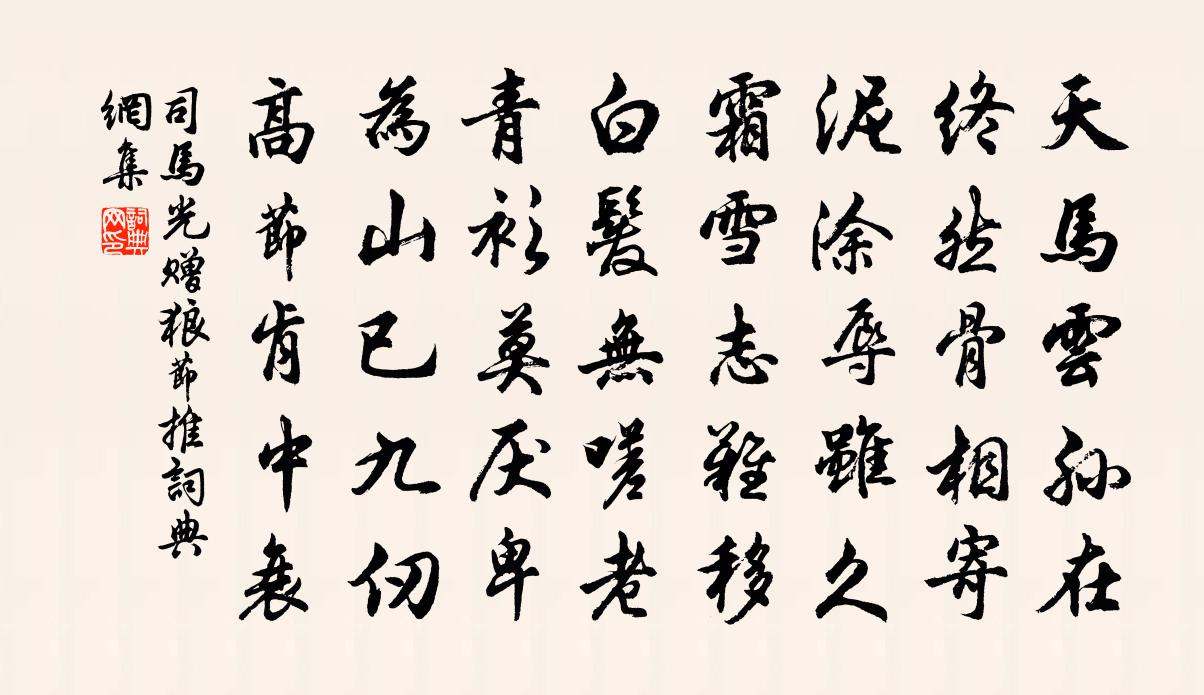 天馬雲孫在
終然骨相寄
泥涂辱雖久
霜雪志難移
白髮無嗟老
青衫莫厌卑
為山已九仞
高節肯中衰
司馬光贈狼節推詞典
網集
詞典
网印